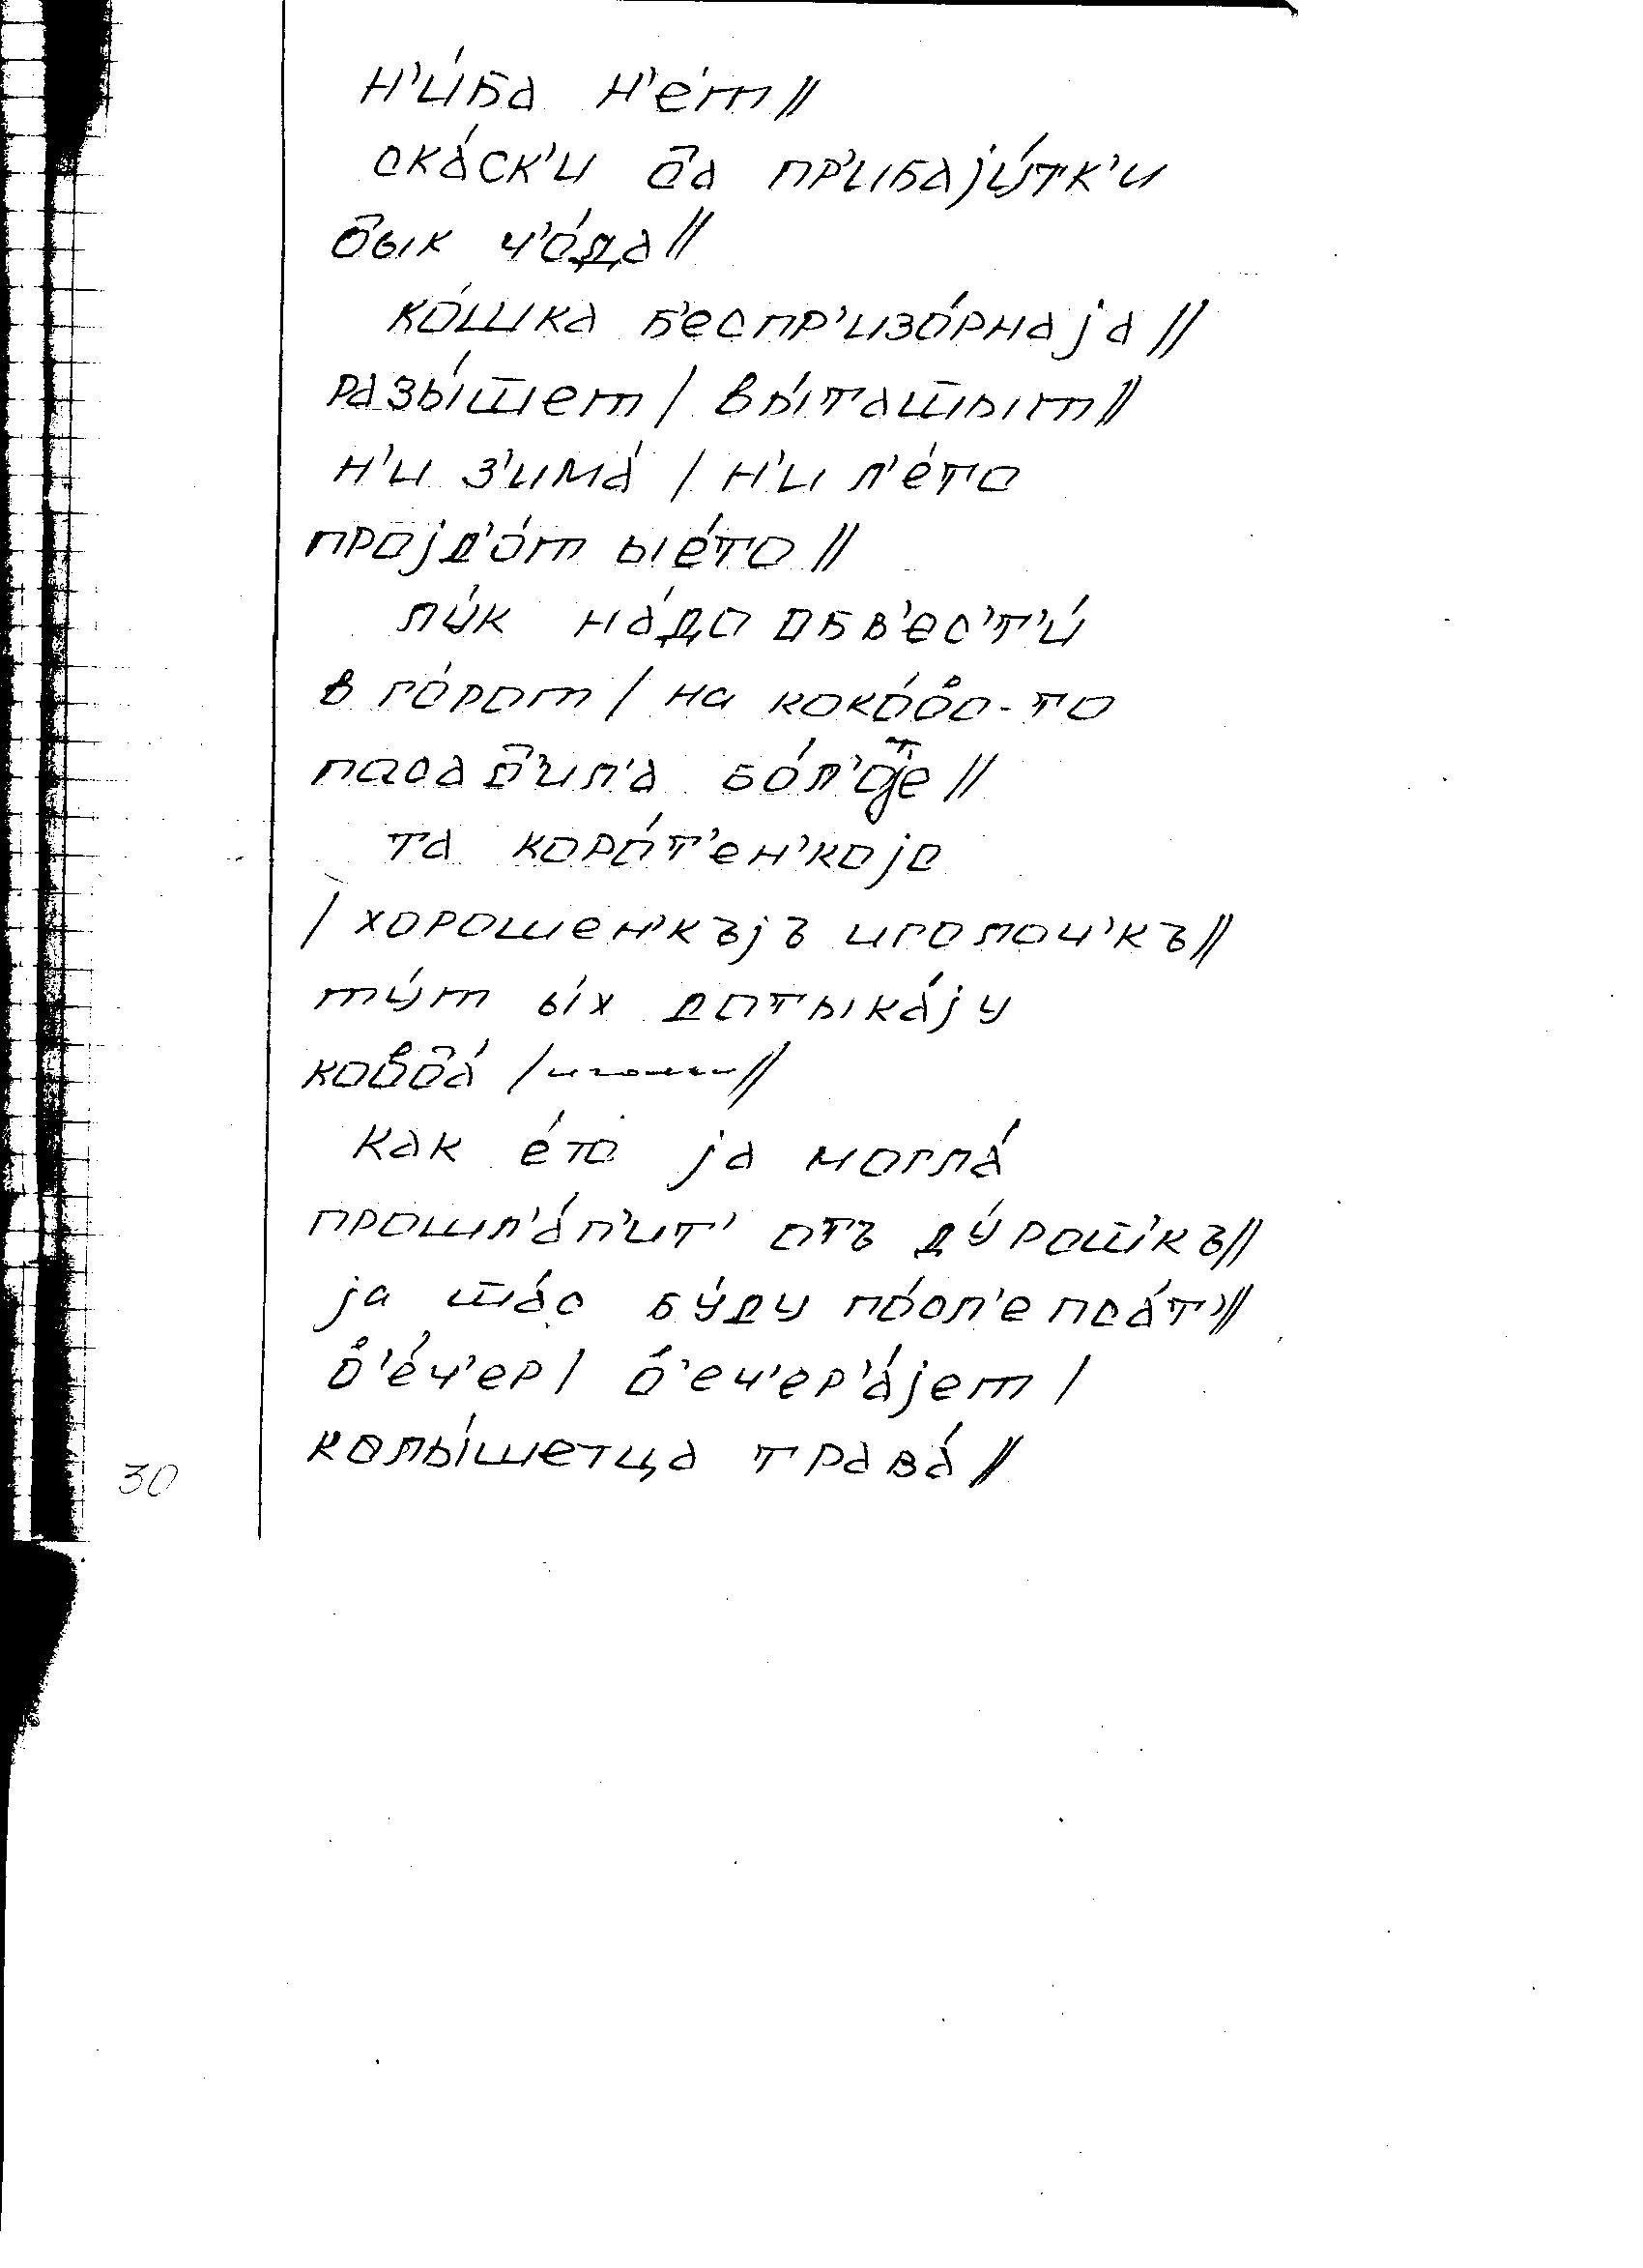 н'и́ба н'е́т//
ска́ск'и д̄а пр'ибајýтк'и
д̄ык ч'о́да//
ко́шка б'еспр'изо́рнаја//
разы́ш̄ет/ вы́таш̄ыт//
н'и з'има́ / н'и л'е́то
пројд'о́т ые́то//
лу́к на́до обв'ес'т'и́
в го́рот/ на
бо́л'
та коро́т'ен'којо
/ хорошен'къјъ иголоч'къ//
ту́т ы́х дотыка́ју
как е́то ја могла́
прошл'а́п'ит' отъ ду́рош̄къ//
ја ш̄а́с бу́ду по́сл'е пса́т'//
в'е́ч'ер/ в'еч'ер'а́јет/
колы́шетца трава́//
30